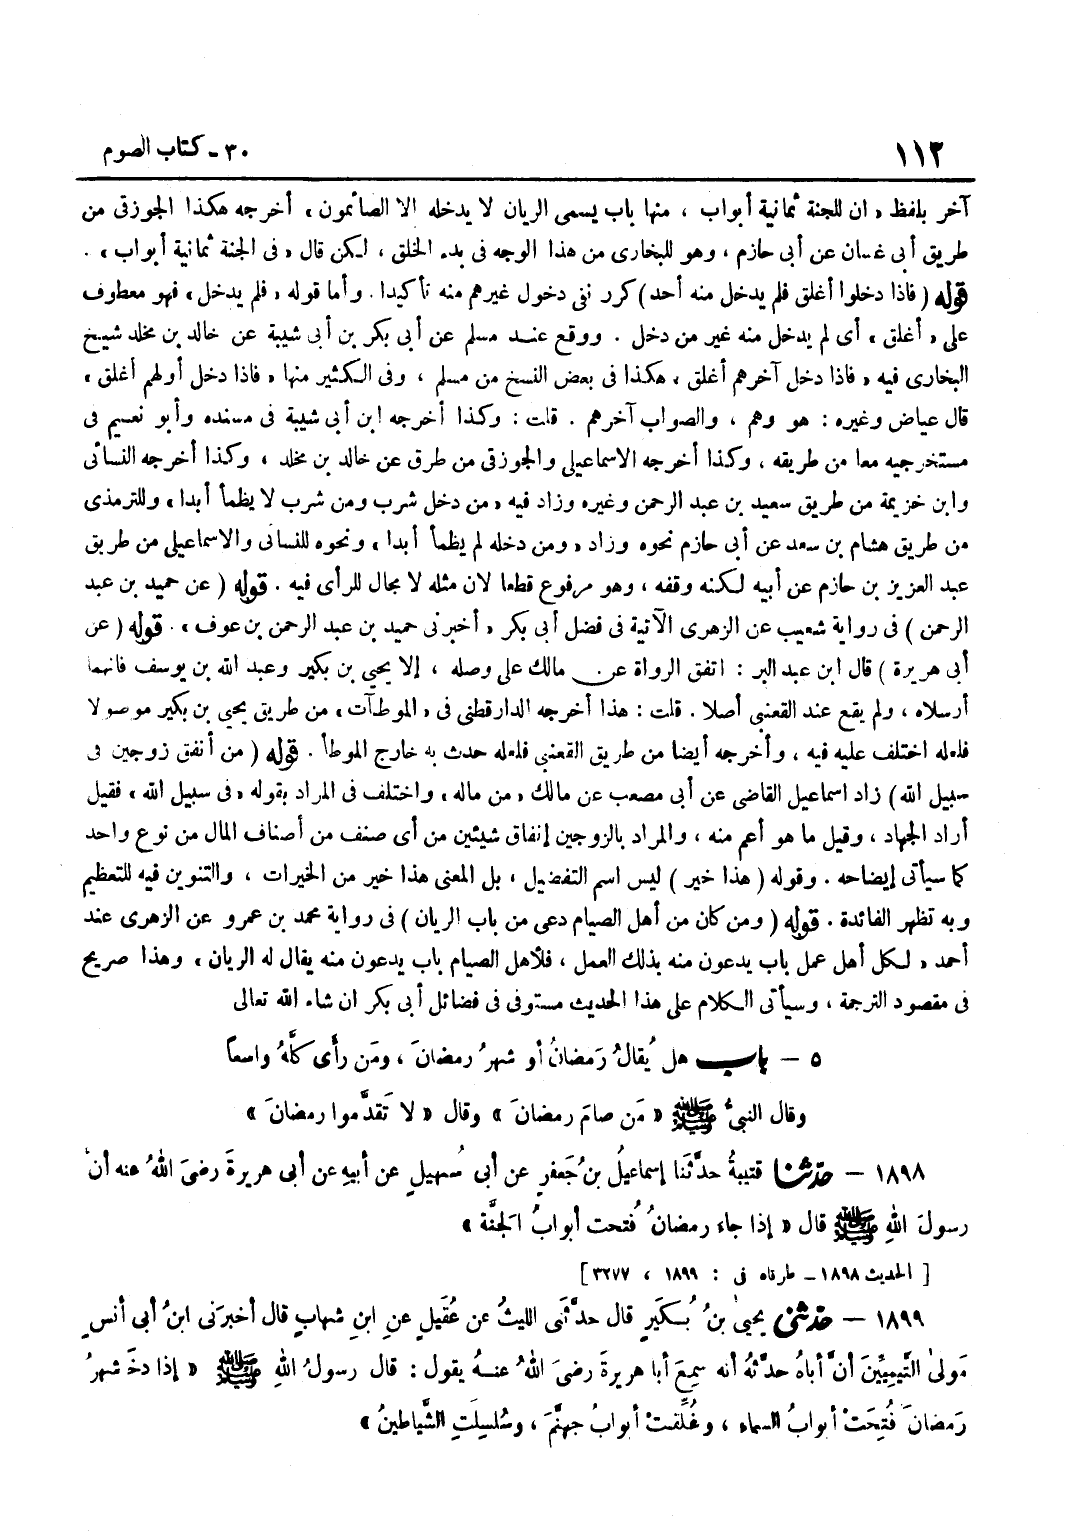 ١١٢
٣٠ - كتاب الصوم
آخر بلفظ « ان للجنة ثمانية أبواب ، منها باب يسمى الريان لا يدخله الا الصائمون » أخرجه هكذا الجوزقى من
طريق أبى غسان عن أبى حازم ، وهو للبخارى من هذا الوجه فى بدء الخلق ، لكن قال « فى الجنة ثمانية أبواب » .
قوله ( فاذا دخلوا أغلق فلم يدخل منه أحد ) كرر نفى دخول غيرهم منه تأكيدا . وأما قوله « فلم يدخل » فهو معطوف
على « أغلق » أى لم يدخل منه غير من دخل . ووقع عند مسلم عن أبى بكر بن أبى شيبة عن خالد بن مخلد شيخ
البخارى فيه « فاذا دخل آخرهم أغلق » هكذا فى بعض النسخ من مسلم ، وفى الكثير منها « فاذا دخل أولهم أغلق »
قال عياض وغيره : هو وهم ، والصواب آخرهم . قلت : وكذا أخرجه ابن أبى شيبة فى مسنده وأبو نعيم فى
مستخرجيه معا من طريقه ، وكذا أخرجه الاسماعيلى والجوزقى من طرق عن خالد بن مخلد ، وكذا أخرجه النسائى
وابن خزيمة من طريق سعيد بن عبد الرحمن وغيره وزاد فيه « من دخل شرب ومن شرب لا يظمأ أبدا » وللترمذى
من طريق هشام بن سعد عن أبى حازم نحوه وزاد « ومن دخله لم يظمأ أبدا » ونحوه للنسائى والاسماعيلى من طريق
عبد العزيز بن حازم عن أبيه لكنه وقفه ، وهو مرفوع قطعا لان مثله لا مجال للرأى فيه . قوله ( عن حميد بن عبد
الرحمن ) فى رواية شعيب عن الزهرى الآتية فى فضل أبى بكر « أخبرنى حميد بن عبد الرحمن بن عوف » . قوله ( عن
أبى هريرة ) قال ابن عبد البر : اتفق الرواة عن مالك على وصله ، إلا يحيى بن بكير وعبد الله بن يوسف فانهما
أرسلاه ، ولم يقع عند القعنبى أصلا . قلت : هذا أخرجه الدارقطنى فى « الموطآت » من طريق يحيى بن بكير موصولا
فلعله اختلف عليه فيه ، وأخرجه أيضا من طريق القعنبى فلعله حدث به خارج الموطأ . قوله ( من أنفق زوجين فى
سبيل الله ) زاد اسماعيل القاضى عن أبى مصعب عن مالك « من ماله » واختلف فى المراد بقوله « فى سبيل الله » فقيل
أراد الجهاد ، وقيل ما هو أعم منه ، والمراد بالزوجين إنفاق شيئين من أى صنف من أصناف المال من نوع واحد
كما سيأتى إيضاحه . وقوله ( هذا خير ) ليس اسم التفضيل ، بل المعنى هذا خير من الخيرات ، والتنوين فيه للتعظيم
وبه تظهر الفائدة . قوله ( ومن كان من أهل الصيام دعى من باب الريان ) فى رواية محمد بن عمرو عن الزهرى عند
أحمد « لكل أهل عمل باب يدعون منه بذلك العمل ، فلأهل الصيام باب يدعون منه يقال له الريان » وهذا صريح
فى مقصود الترجمة ، وسيأتى الكلام على هذا الحديث مستوفى فى فضائل أبى بكر ان شاء الله تعالى
٥ – باب هل يُقالُ رَمضانُ أو شهرُ رمضانَ ، ومَن رأَى كلَّهُ واسعاً
وقال النبىُّ ﷺ « مَن صامَ رمضانَ » وقال « لا تَقدَّموا رمضانَ »
١٨٩٨ – حدثنا قتيبةُ حدَّثَنا إسماعيلُ بنُ جَعفرٍ عن أبى سُهيلٍ عن أبيهِ عن أبى هريرةَ رضىَ اللهُ عنه أنَّ
رسولَ اللهِ ﷺ قال « إذا جاءَ رمضانُ فُتحت أبوابُ الجنَّة »
[ الحديث ١٨٩٨ – طرفاه فى : ١٨٩٩ ، ٣٢٧٧ ]
١٨٩٩ – حدثنى يحيىٰ بنُ بُكَيرٍ قال حدَّثَنى الليثُ عن عُقَيلٍ عنِ ابنِ شهابٍ قال أخبرَنى ابنُ أبى أنسٍ
مَولىٰ التَّيمِيِّينَ أنَّ أباهُ حدَّثهُ أنه سمِعَ أبا هريرةَ رضىَ اللهُ عنهُ يقول : قال رسولُ اللهِ ﷺ « إذا دخلَ شهرُ
رَمضانَ فُتِحَتْ أبوابُ السماءِ ، وغُلِّقت أبوابُ جهنَّمَ ، وسُلسِلَتِ الشَّياطينُ »